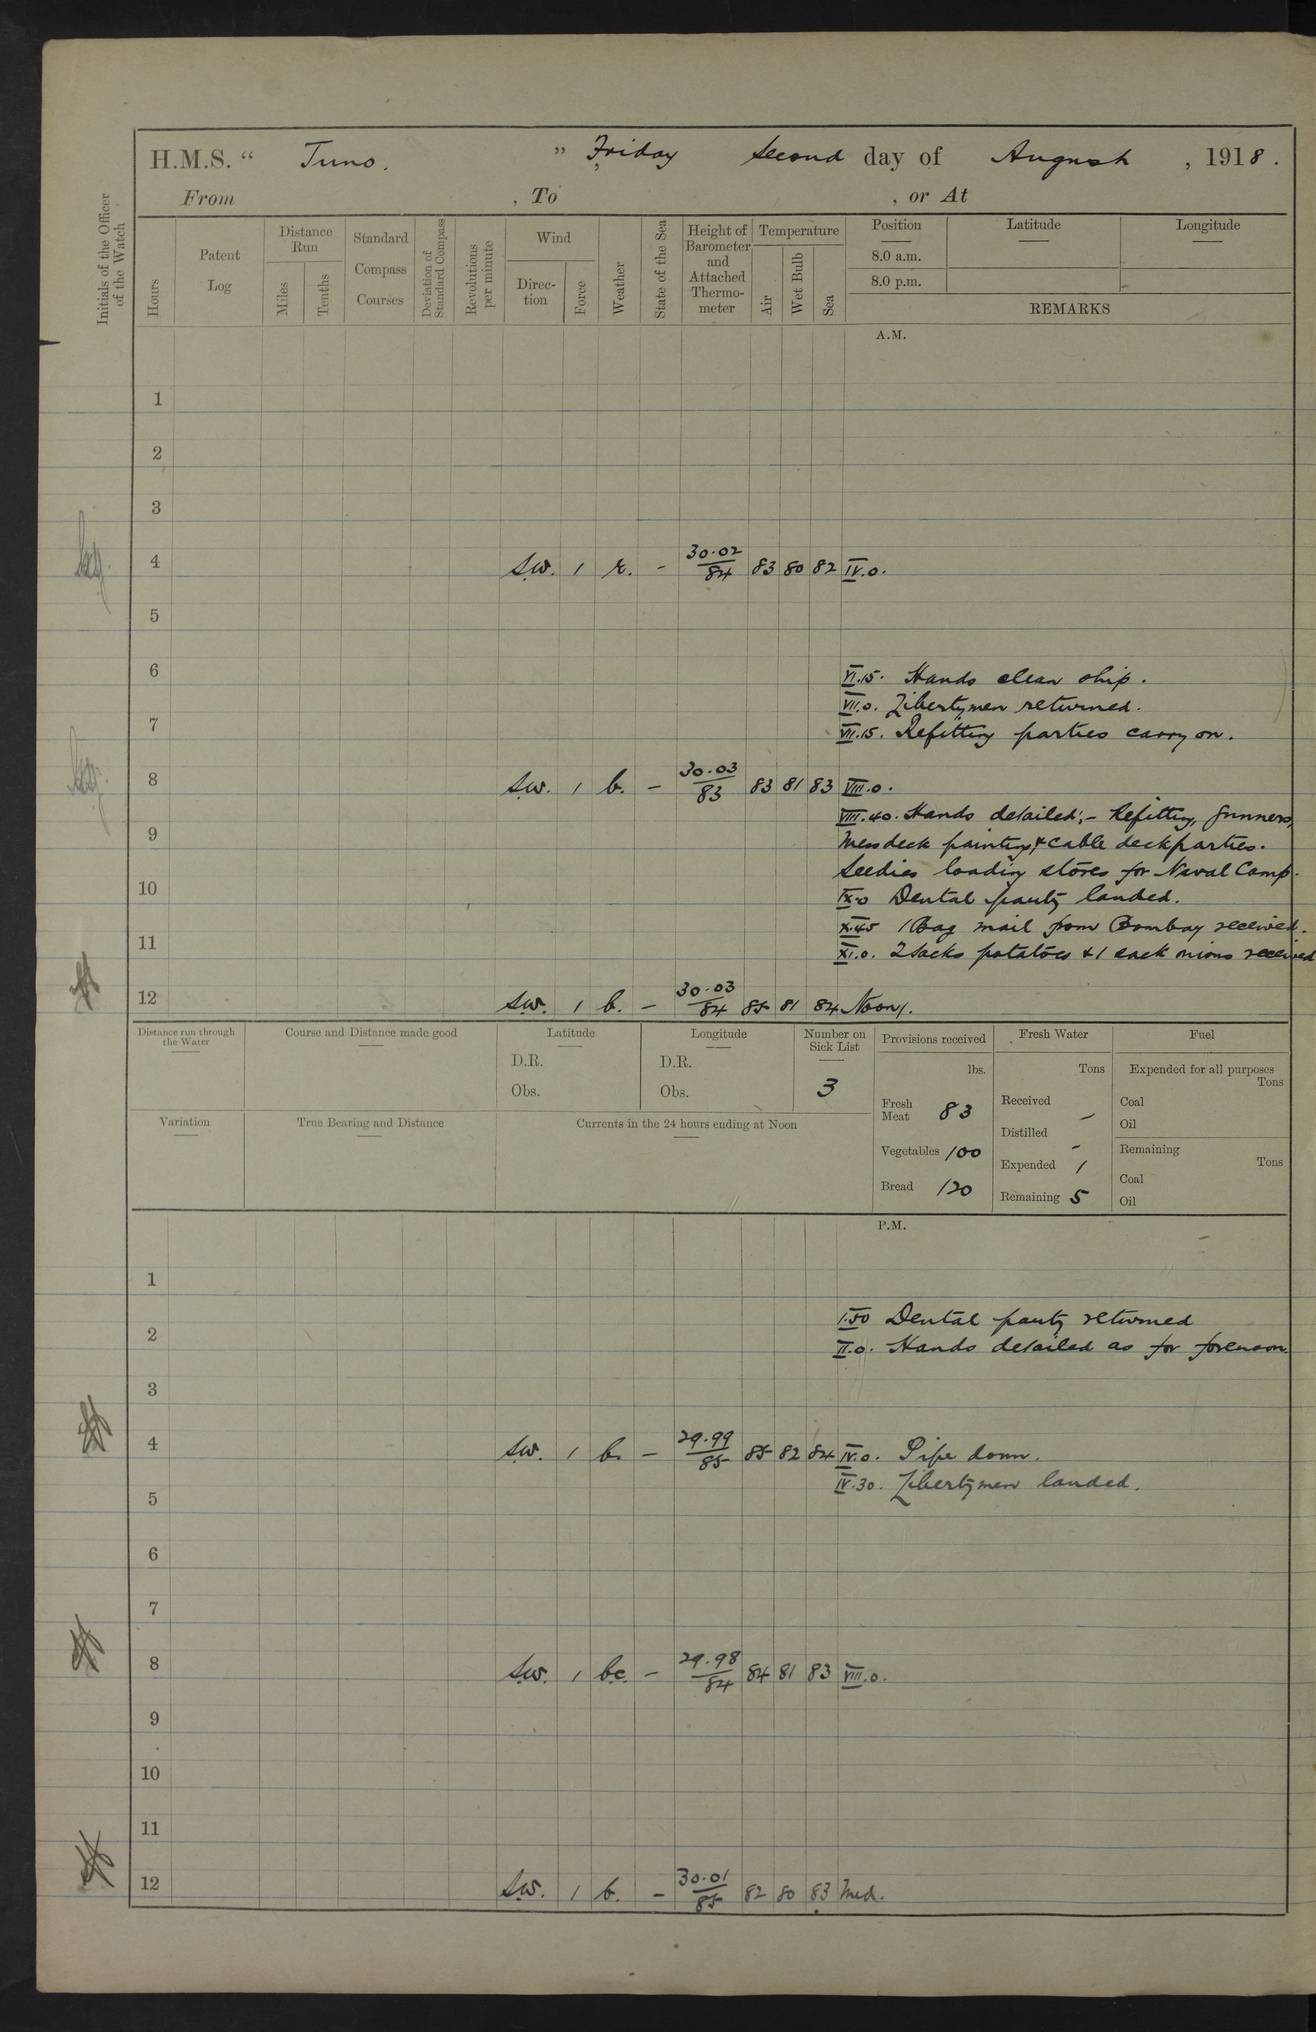 H.M.S. “ Juno. ” Friday Second day of August , 1918.
From , To , or At
Initials of the Officer of the Watch
Hours
Patent Log
Distance Run
Miles
Tenths
Standard Compass Courses
Deviation of Standard Compass
Revolutions per minute
Wind
Direction
Force
Weather
State of the Sea
Height of Barometer and Attached Thermometer
Temperature
Air
Wet Bulb
Sea
Position Latitude Longitude
8.0 a.m.
8.0 p.m.
REMARKS
A.M.
1
2
3
4 S.W. 1 r. - 30.02/84 83 80 82 IV.0.
5
6
VI.15. Hands clean ship.
VII.0. Libertymen returned.
7 VII.15. Refitting parties carry on.
8 S.W. 1 b. - 30.03/83 83 81 83 VIII.0.
VIII.40. Hands detailed:- Refitting, Gunners,
9 Messdeck painting & cable deck parties.
Seedies loading stores for Naval Camp.
10 IX.0 Dental party landed.
X.45 1 Bag mail from Bombay received.
11 XI.0. 2 sacks potatoes & 1 sack onions received
12 S.W. 1 b. - 30.03/84 85 81 84 Noon/.
Distance run through the Water
Course and Distance made good
Latitude
D.R.
Obs.
Longitude
D.R.
Obs.
Number on Sick List
3
Provisions received
lbs.
Fresh Meat 83
Vegetables 100
Bread 120
Fresh Water
Tons
Received -
Distilled -
Expended 1
Remaining 5
Fuel
Expended for all purposes
Tons
Coal
Oil
Remaining
Tons
Coal
Oil
Variation
True Bearing and Distance
Currents in the 24 hours ending at Noon
P.M.
1
1.50 Dental party returned
2 II.0. Hands detailed as for forenoon.
3
4 S.W. 1 b. - 29.99/85 85 82 84 IV.0. Pipe down.
IV.30. Libertymen landed.
5
6
7
8 S.W. 1 bc. - 29.98/84 84 81 83 VIII.0.
9
10
11
12 S.W. 1 b. - 30.01/85 82 80 83 Mid.